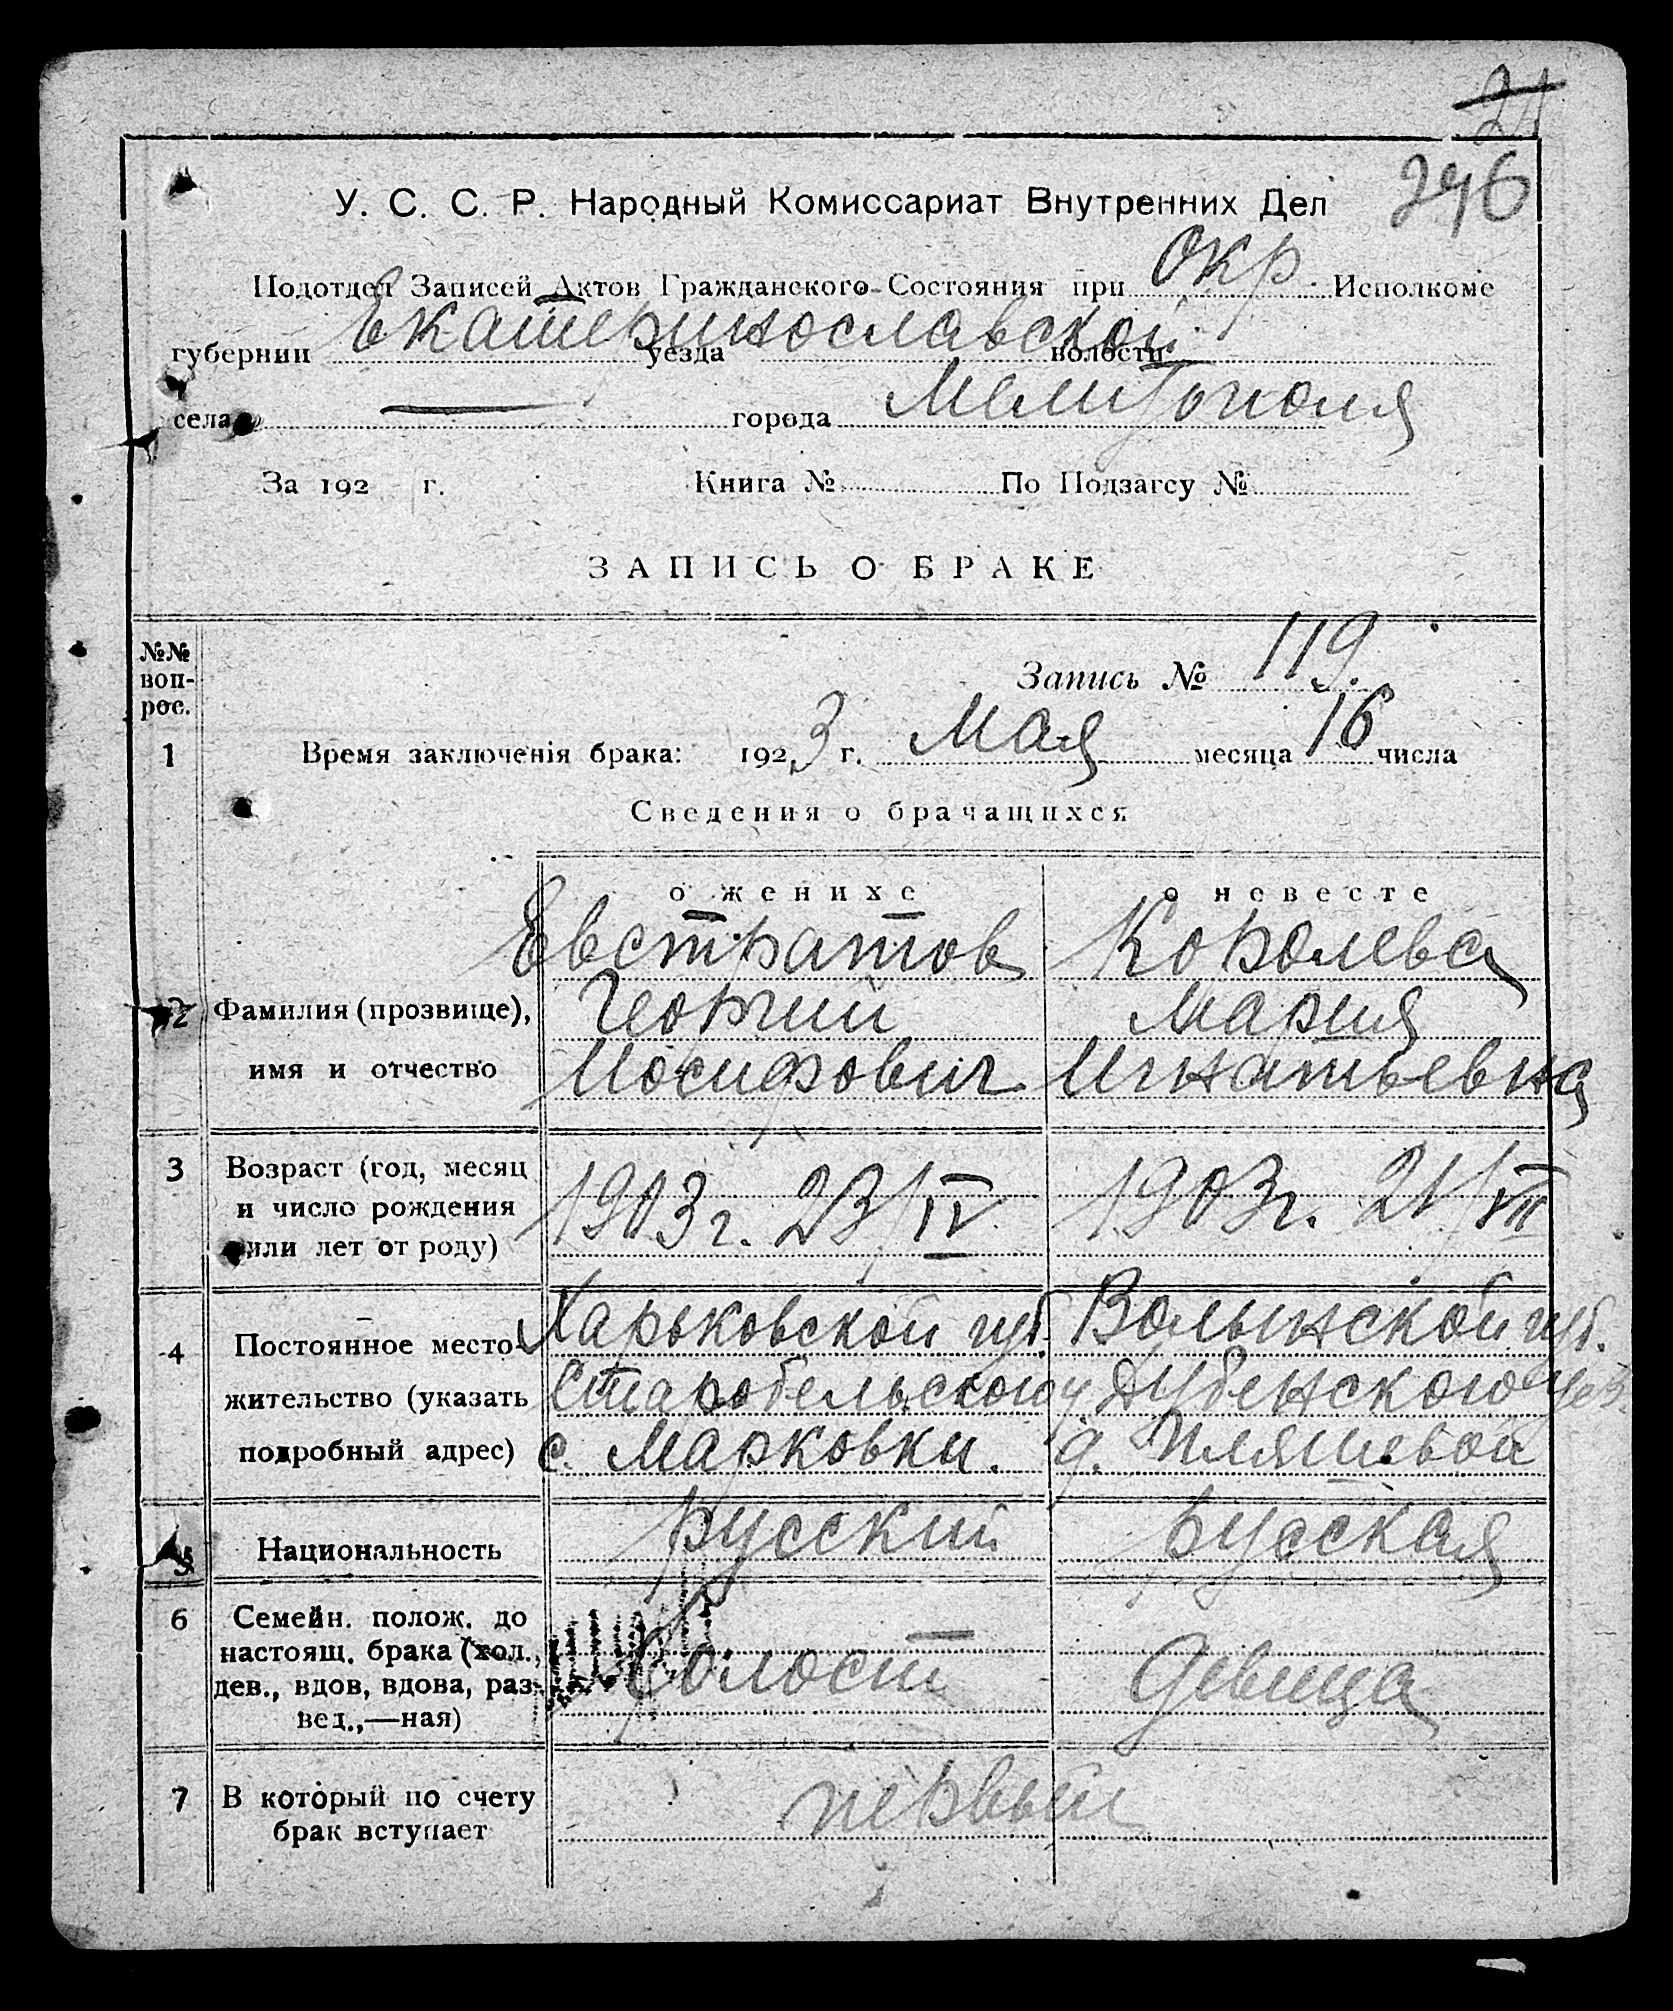 21
246
У. С. С. Р. Народный Комиссариат Внутренних Дел
Подотдел Записей Актов Гражданского Состояния при Окр. Исполкоме
губернии Екатеринославской уезда волости
села — города Мелитополя
За 192 г. Книга № По Подзагсу №
ЗАПИСЬ О БРАКЕ
№№ воп- рос.
Запись № 119.
1 Время заключенія брака: 1923 г. Мая месяца 16 числа
Сведения о брачащихся
о женихе о невесте
Евстратов Королева
2 Фамилия (прозвище), Георгий Мария
имя и отчество Иосифович Игнатьевна
3 Возраст (год, месяц
и число рождения 1903 г. 23/IV 1903 г. 21/VII
или лет от роду)
Харьковской губ. Волынской губ.
4 Постоянное место-
жительство (указать Старобельского у Дубенского уез.
подробный адрес) с. Марковки. д. Пляшевой
5 Национальность русский русская
6 Семейн. полож. до
настоящ. брака (хол.,
дев., вдов, вдова, раз- Холост девица
вед.,—ная)
7 В который по счету первый
брак вступает